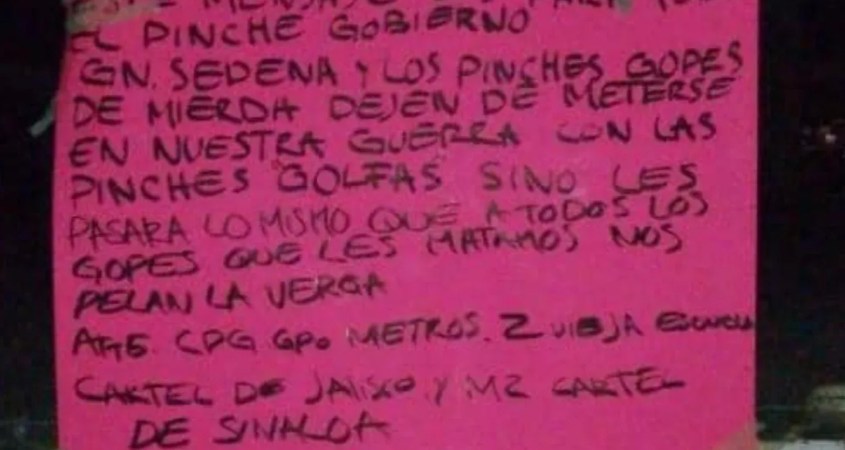 ESTE MENSAJE PARA
EL PINCHE GOBIERNO
GN. SEDENA Y LOS PINCHES GOPES
DE MIERDA DEJEN DE METERSE
EN NUESTRA GUERRA CON LAS
PINCHES GOLFAS SINO LES
PASARA LO MISMO QUE A TODOS LOS
GOPES QUE LES MATAMOS NOS
PELAN LA VERGA
CDG GPO METROS. Z VIEJA ESCUELA
CARTEL DE JALISCO Y MZ CARTEL
DE SINALOA